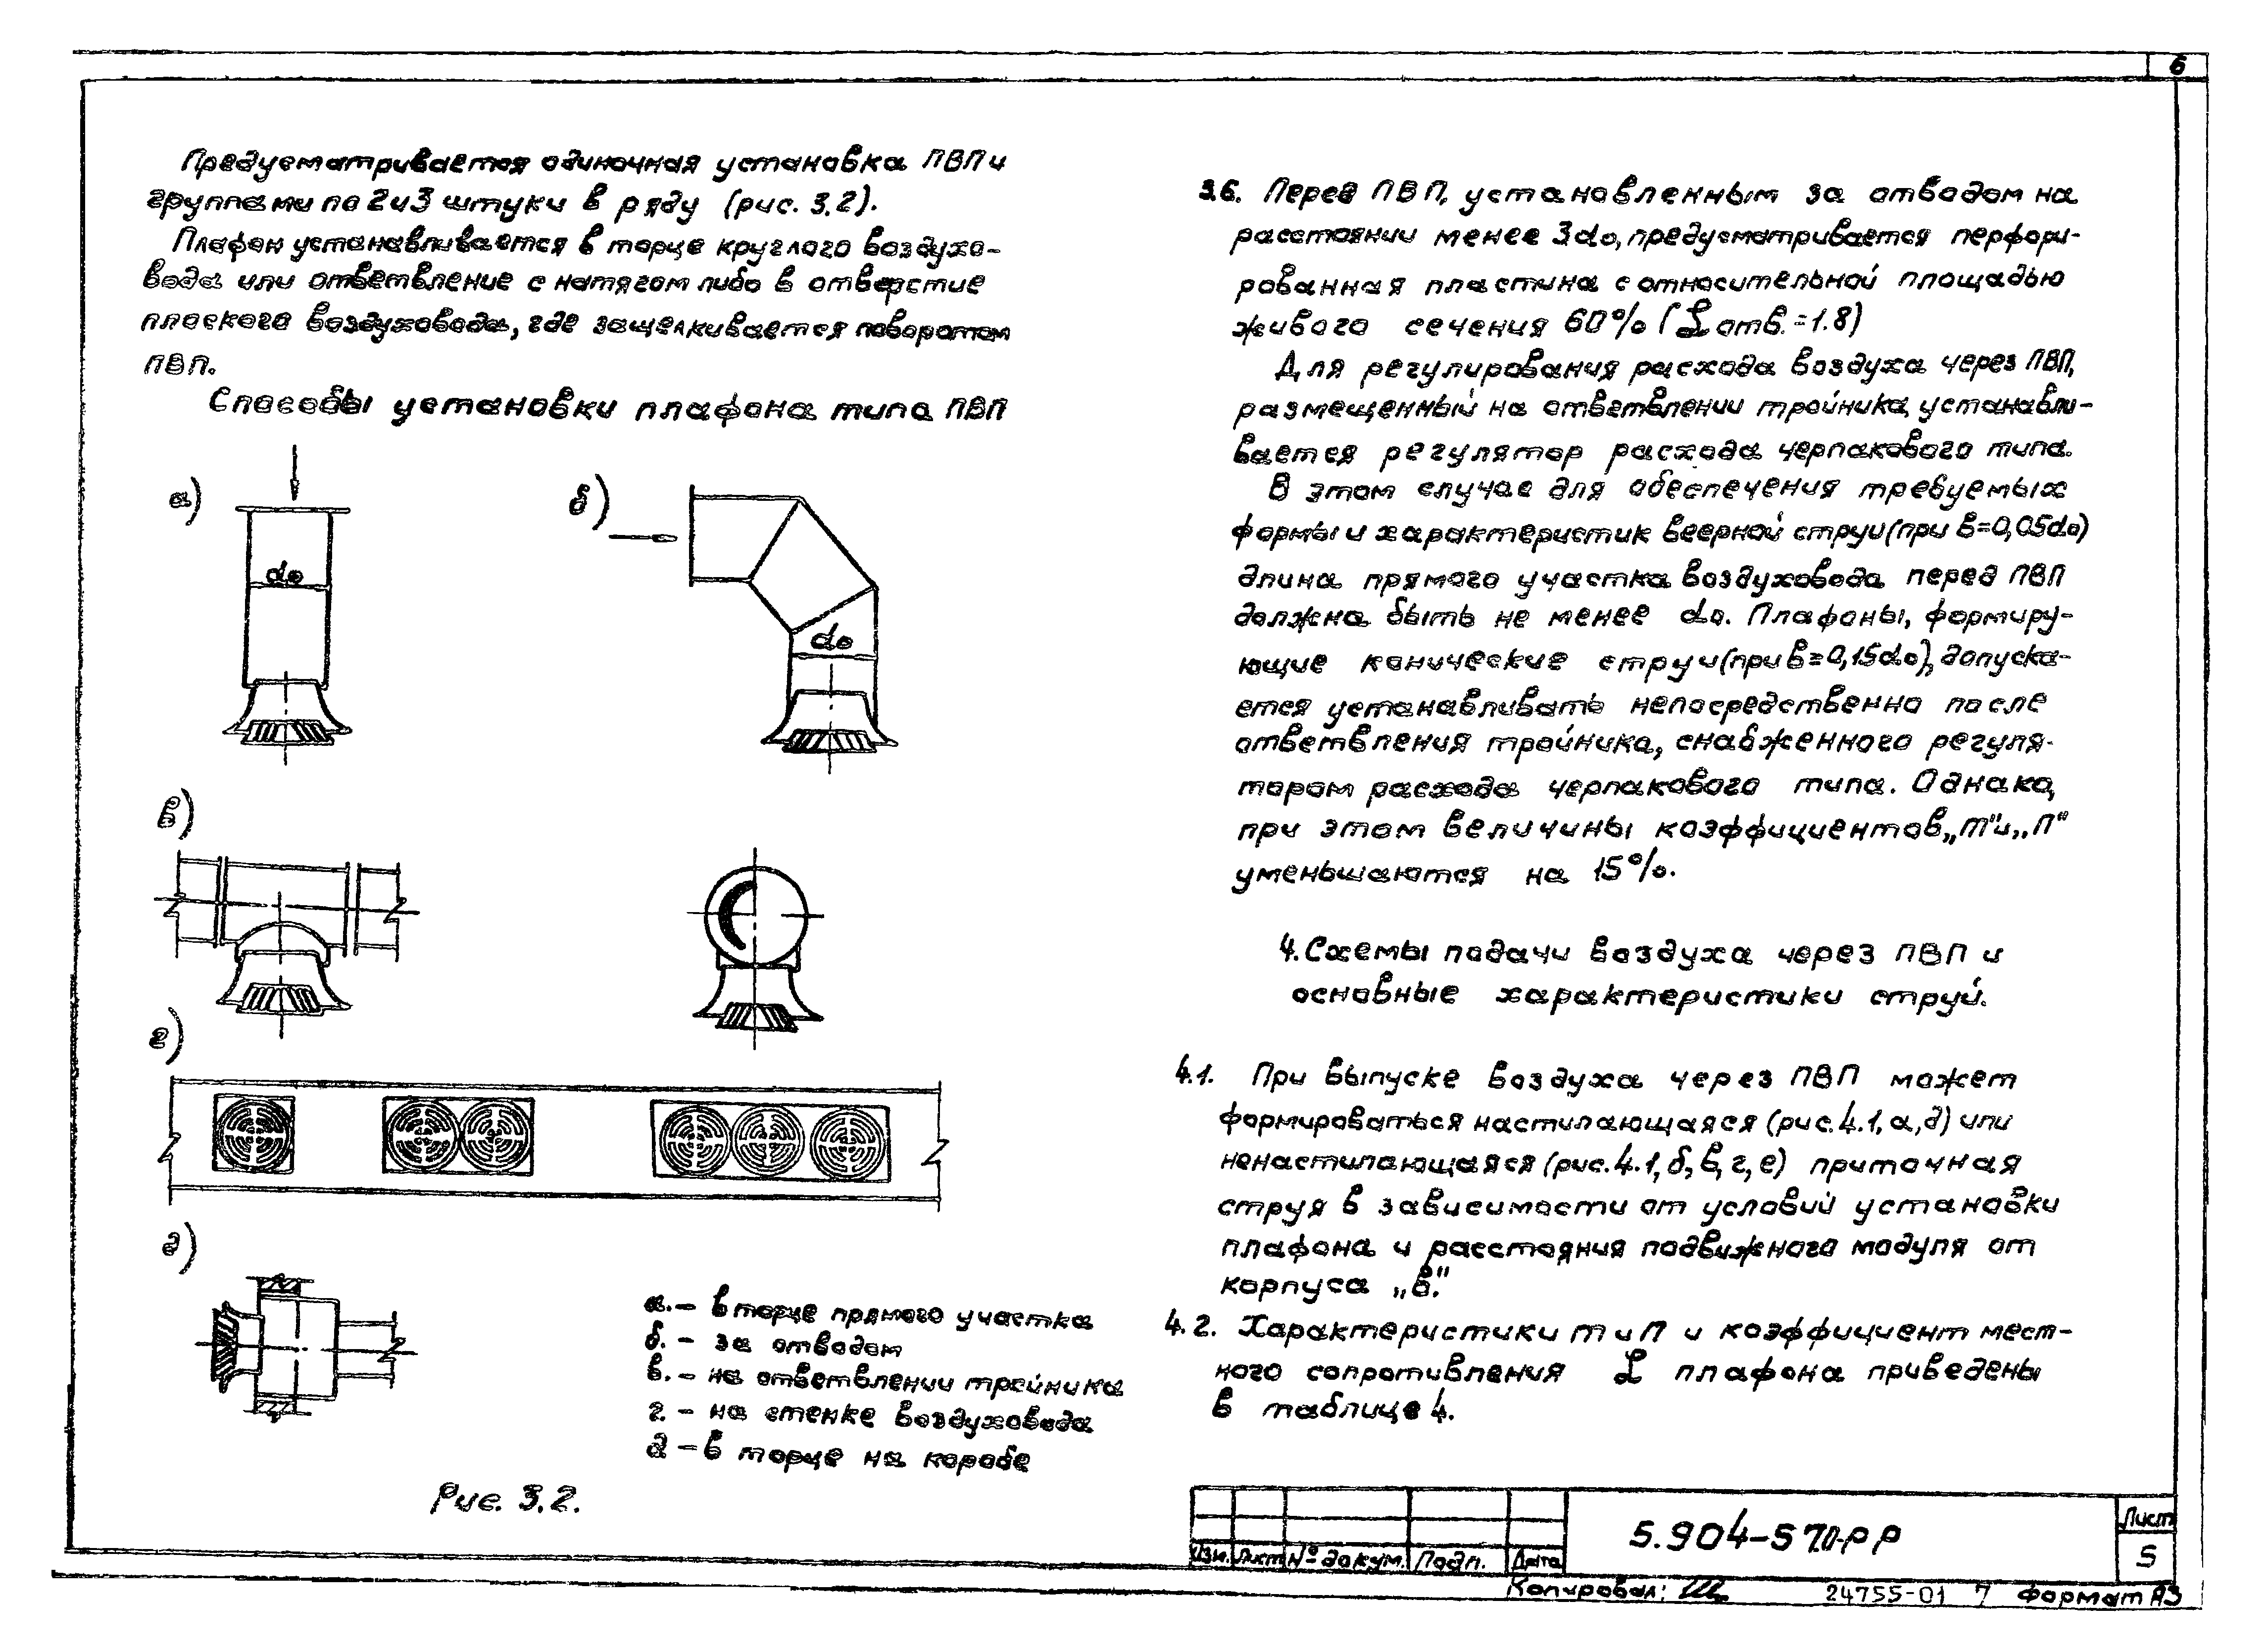 6
Предусматривается одиночная установка ПВП и
группами по 2 и 3 штуки в ряду (рис. 3.2).
Плафон устанавливается в торце круглого воздухо-
вода или ответвление с натягом либо в отверстие
плоского воздуховода, где защелкивается поворотом
ПВП.
Способы установки плафона типа ПВП
а)
d₀
б)
d₀
в)
г)
д)
а. – в торце прямого участка
б. – за отводом
в. – на ответвлении тройника
г. – на стенке воздуховода
д – в торце на коробе
Рис. 3.2.
3.6. Перед ПВП, установленным за отводом на
расстоянии менее 3d₀, предусматривается перфори-
рованная пластина с относительной площадью
живого сечения 60% (ζ отв. = 1.8)
Для регулирования расхода воздуха через ПВП,
размещенный на ответвлении тройника, устанавли-
вается регулятор расхода черпакового типа.
В этом случае для обеспечения требуемых
формы и характеристик веерной струи (при в=0,05d₀)
длина прямого участка воздуховода перед ПВП
должна быть не менее d₀. Плафоны, формиру-
ющие конические струи (при в=0,15d₀), допуска-
ется устанавливать непосредственно после
ответвления тройника, снабженного регуля-
тором расхода черпакового типа. Однако,
при этом величины коэффициентов „m" и „п"
уменьшаются на 15%.
4. Схемы подачи воздуха через ПВП и
основные характеристики струй.
4.1. При выпуске воздуха через ПВП может
формироваться настилающаяся (рис. 4.1, а, д) или
ненастилающаяся (рис. 4.1, б, в, г, е) приточная
струя в зависимости от условий установки
плафона и расстояния подвижного модуля от
корпуса „в".
4.2. Характеристики m и П и коэффициент мест-
ного сопротивления ζ плафона приведены
в таблице 4.
Изм. Лист № докум. Подп. Дата
5.904-57.0-РР
Лист
5
Копировал:
24755-01 7 Формат А3